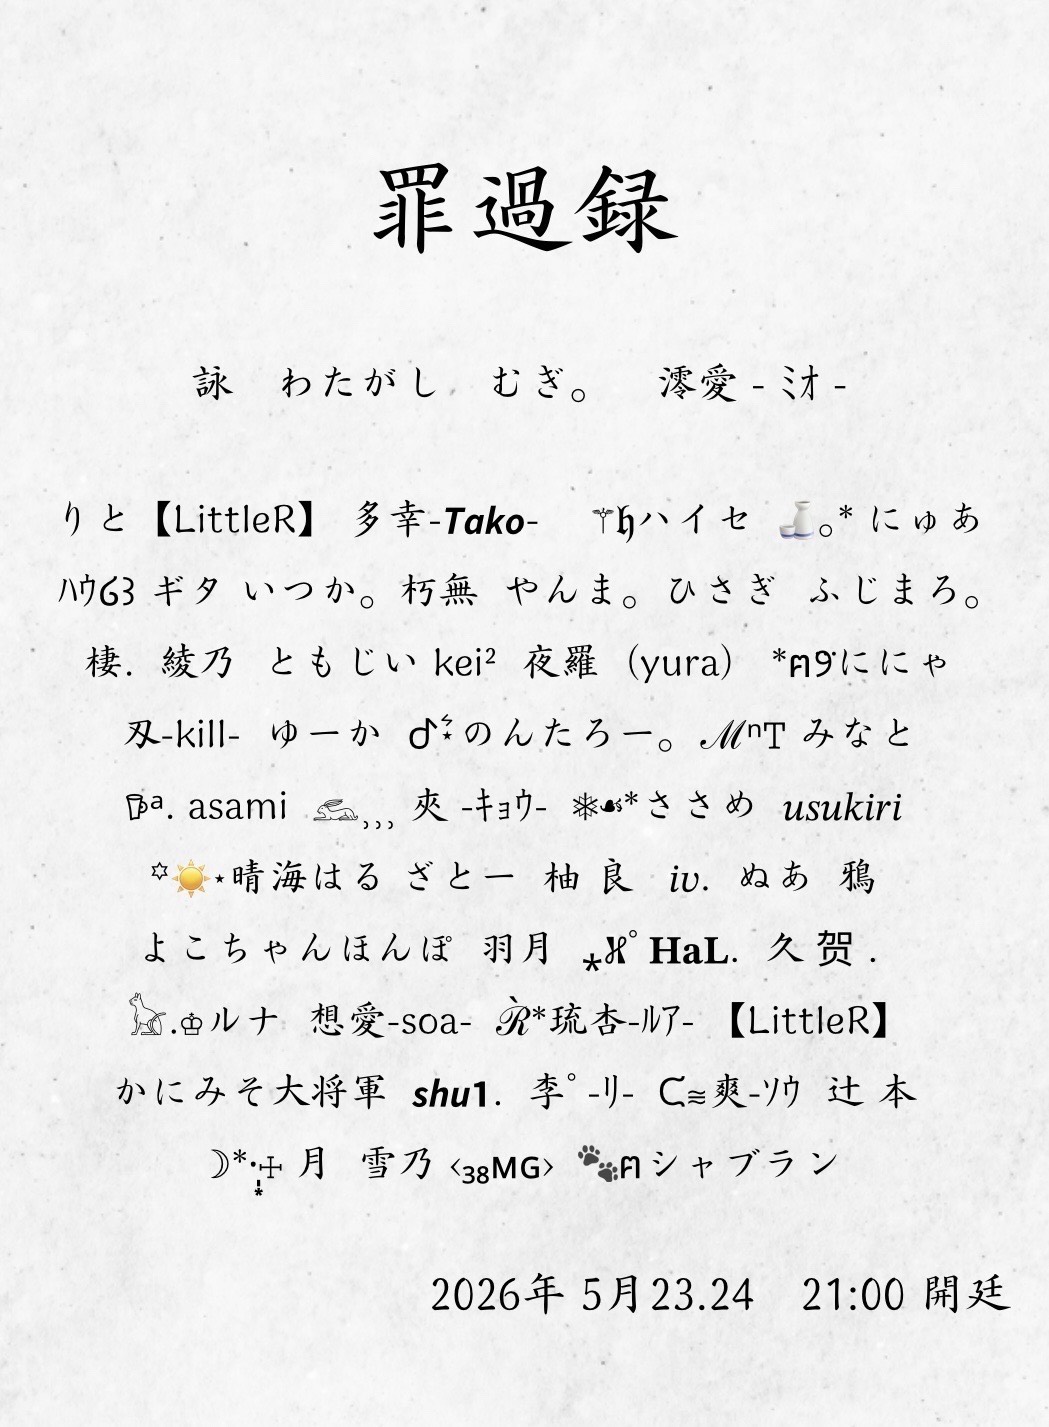 罪過録
詠　わたがし　むぎ。　澪愛 - ﾐｵ -
りと【LittleR】 多幸-𝙏𝙖𝙠𝙤- ⚚𝖍ハイセ 🍶｡* にゅあ
ﾊｳ63 ギタ いつか。 朽無 やんま。 ひさぎ ふじまろ。
棲. 綾乃 ともじい kei² 夜羅 （yura） *ฅ9˙ににゃ
刄-kill- ゆーか のんたろー。 ℳⁿT みなと
asami 𓃹,,, 夾 -ｷｮｳ- ❄☙*ささめ 𝑢𝑠𝑢𝑘𝑖𝑟𝑖
✡☀️⋆晴海はる ざとー 柚 良 𝑖𝑣. ぬあ 鴉
よこちゃんほんぽ 羽月 𝐇𝐚𝐋. 久 贺 .
𓃠.♔ルナ 想愛-soa- ℛ̀*琉杏-ﾙｱ- 【LittleR】
かにみそ大将軍 𝙨𝙝𝙪𝟭. 李ﾟ-ﾘ- ᕋ≋爽-ｿｳ 辻 本
☽*·̩͙☩ 月 雪乃 ‹₃₈ᴍɢ› 🐾ฅシャブラン
2026年 5月23.24　21:00 開廷